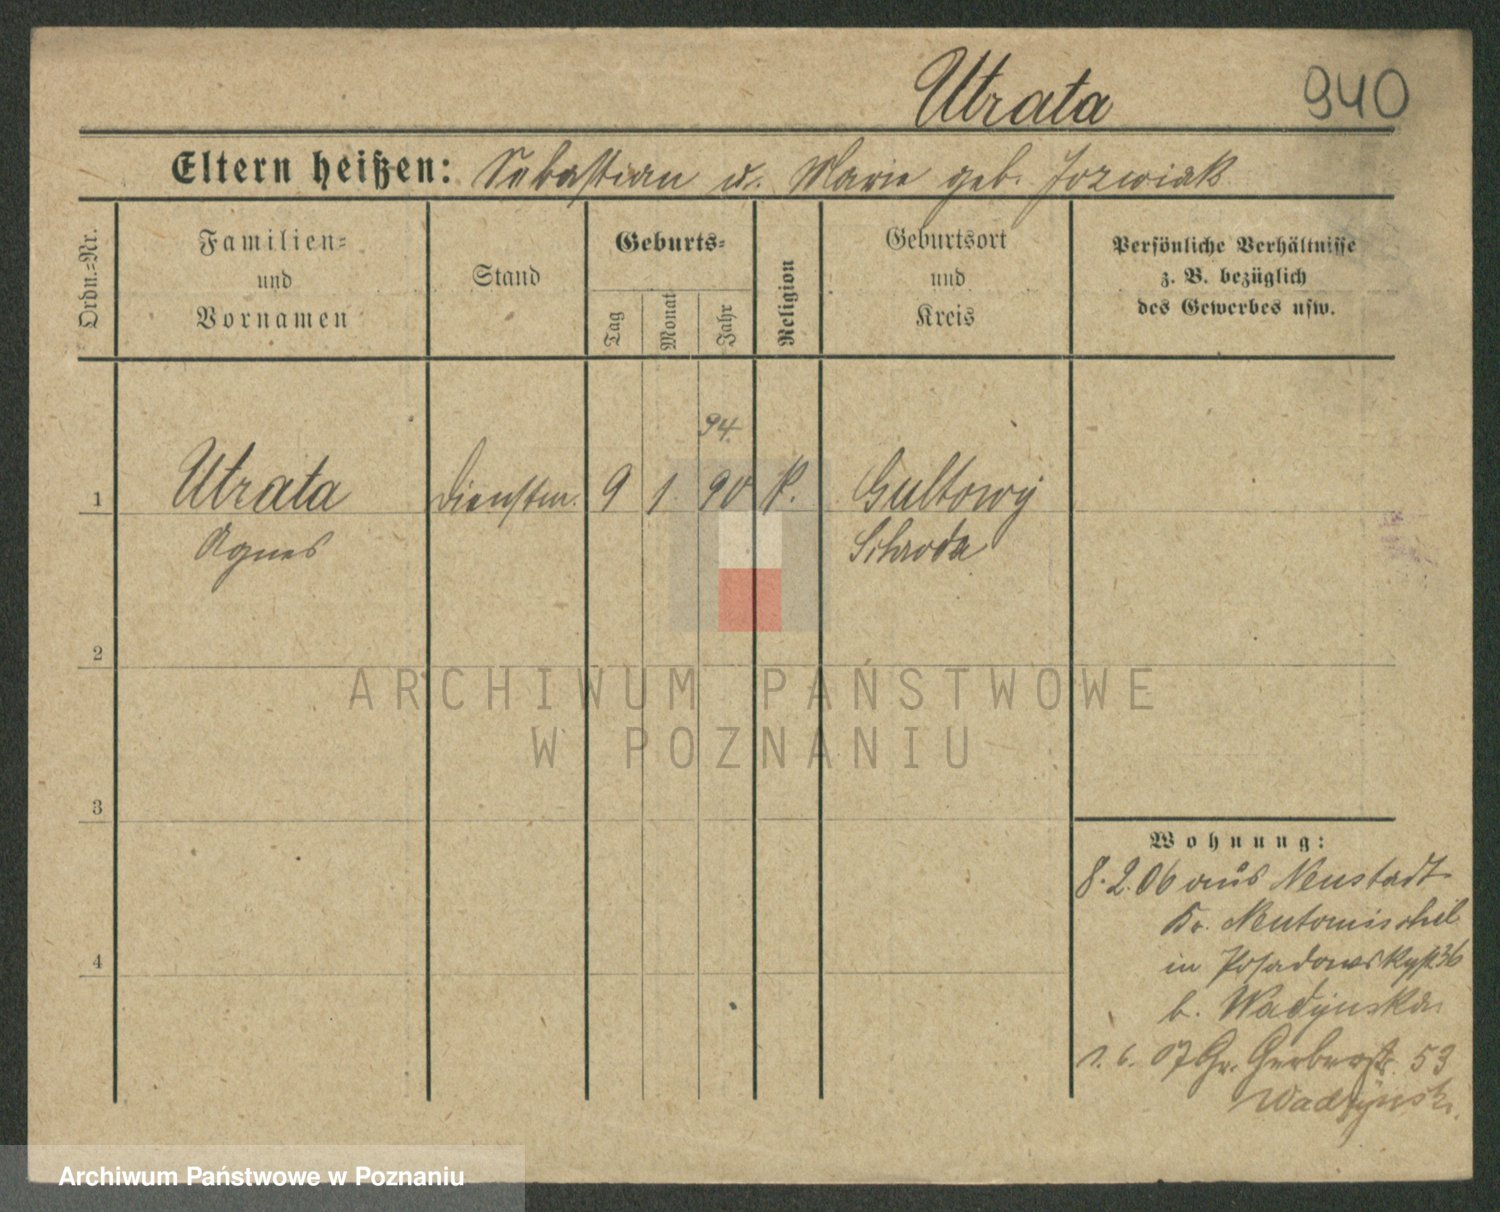 Utrata 940
Eltern heißen: Sebastian u. Marie geb. Jozwiak
Ordn.-Nr.
Familien-
und
Vornamen
Stand
Geburts-
Tag
Monat
Jahr
Religion
Geburtsort
und
Kreis
Persönliche Verhältnisse
z. B. bezüglich
des Gewerbes usw.
94.
1 Utrata Dienstm. 9 1. 90 K. Gultowy
Agnes Schroda
2
3
4
Wohnung:
8.2.06 aus Neustadt
Kr. Neutomischel
in Posadowskystr 36
b. Wadynska
1.6.07 Gr. Gerberstr. 53
ARCHIWUM PAŃSTWOWE
W POZNANIU
Archiwum Państwowe w Poznaniu